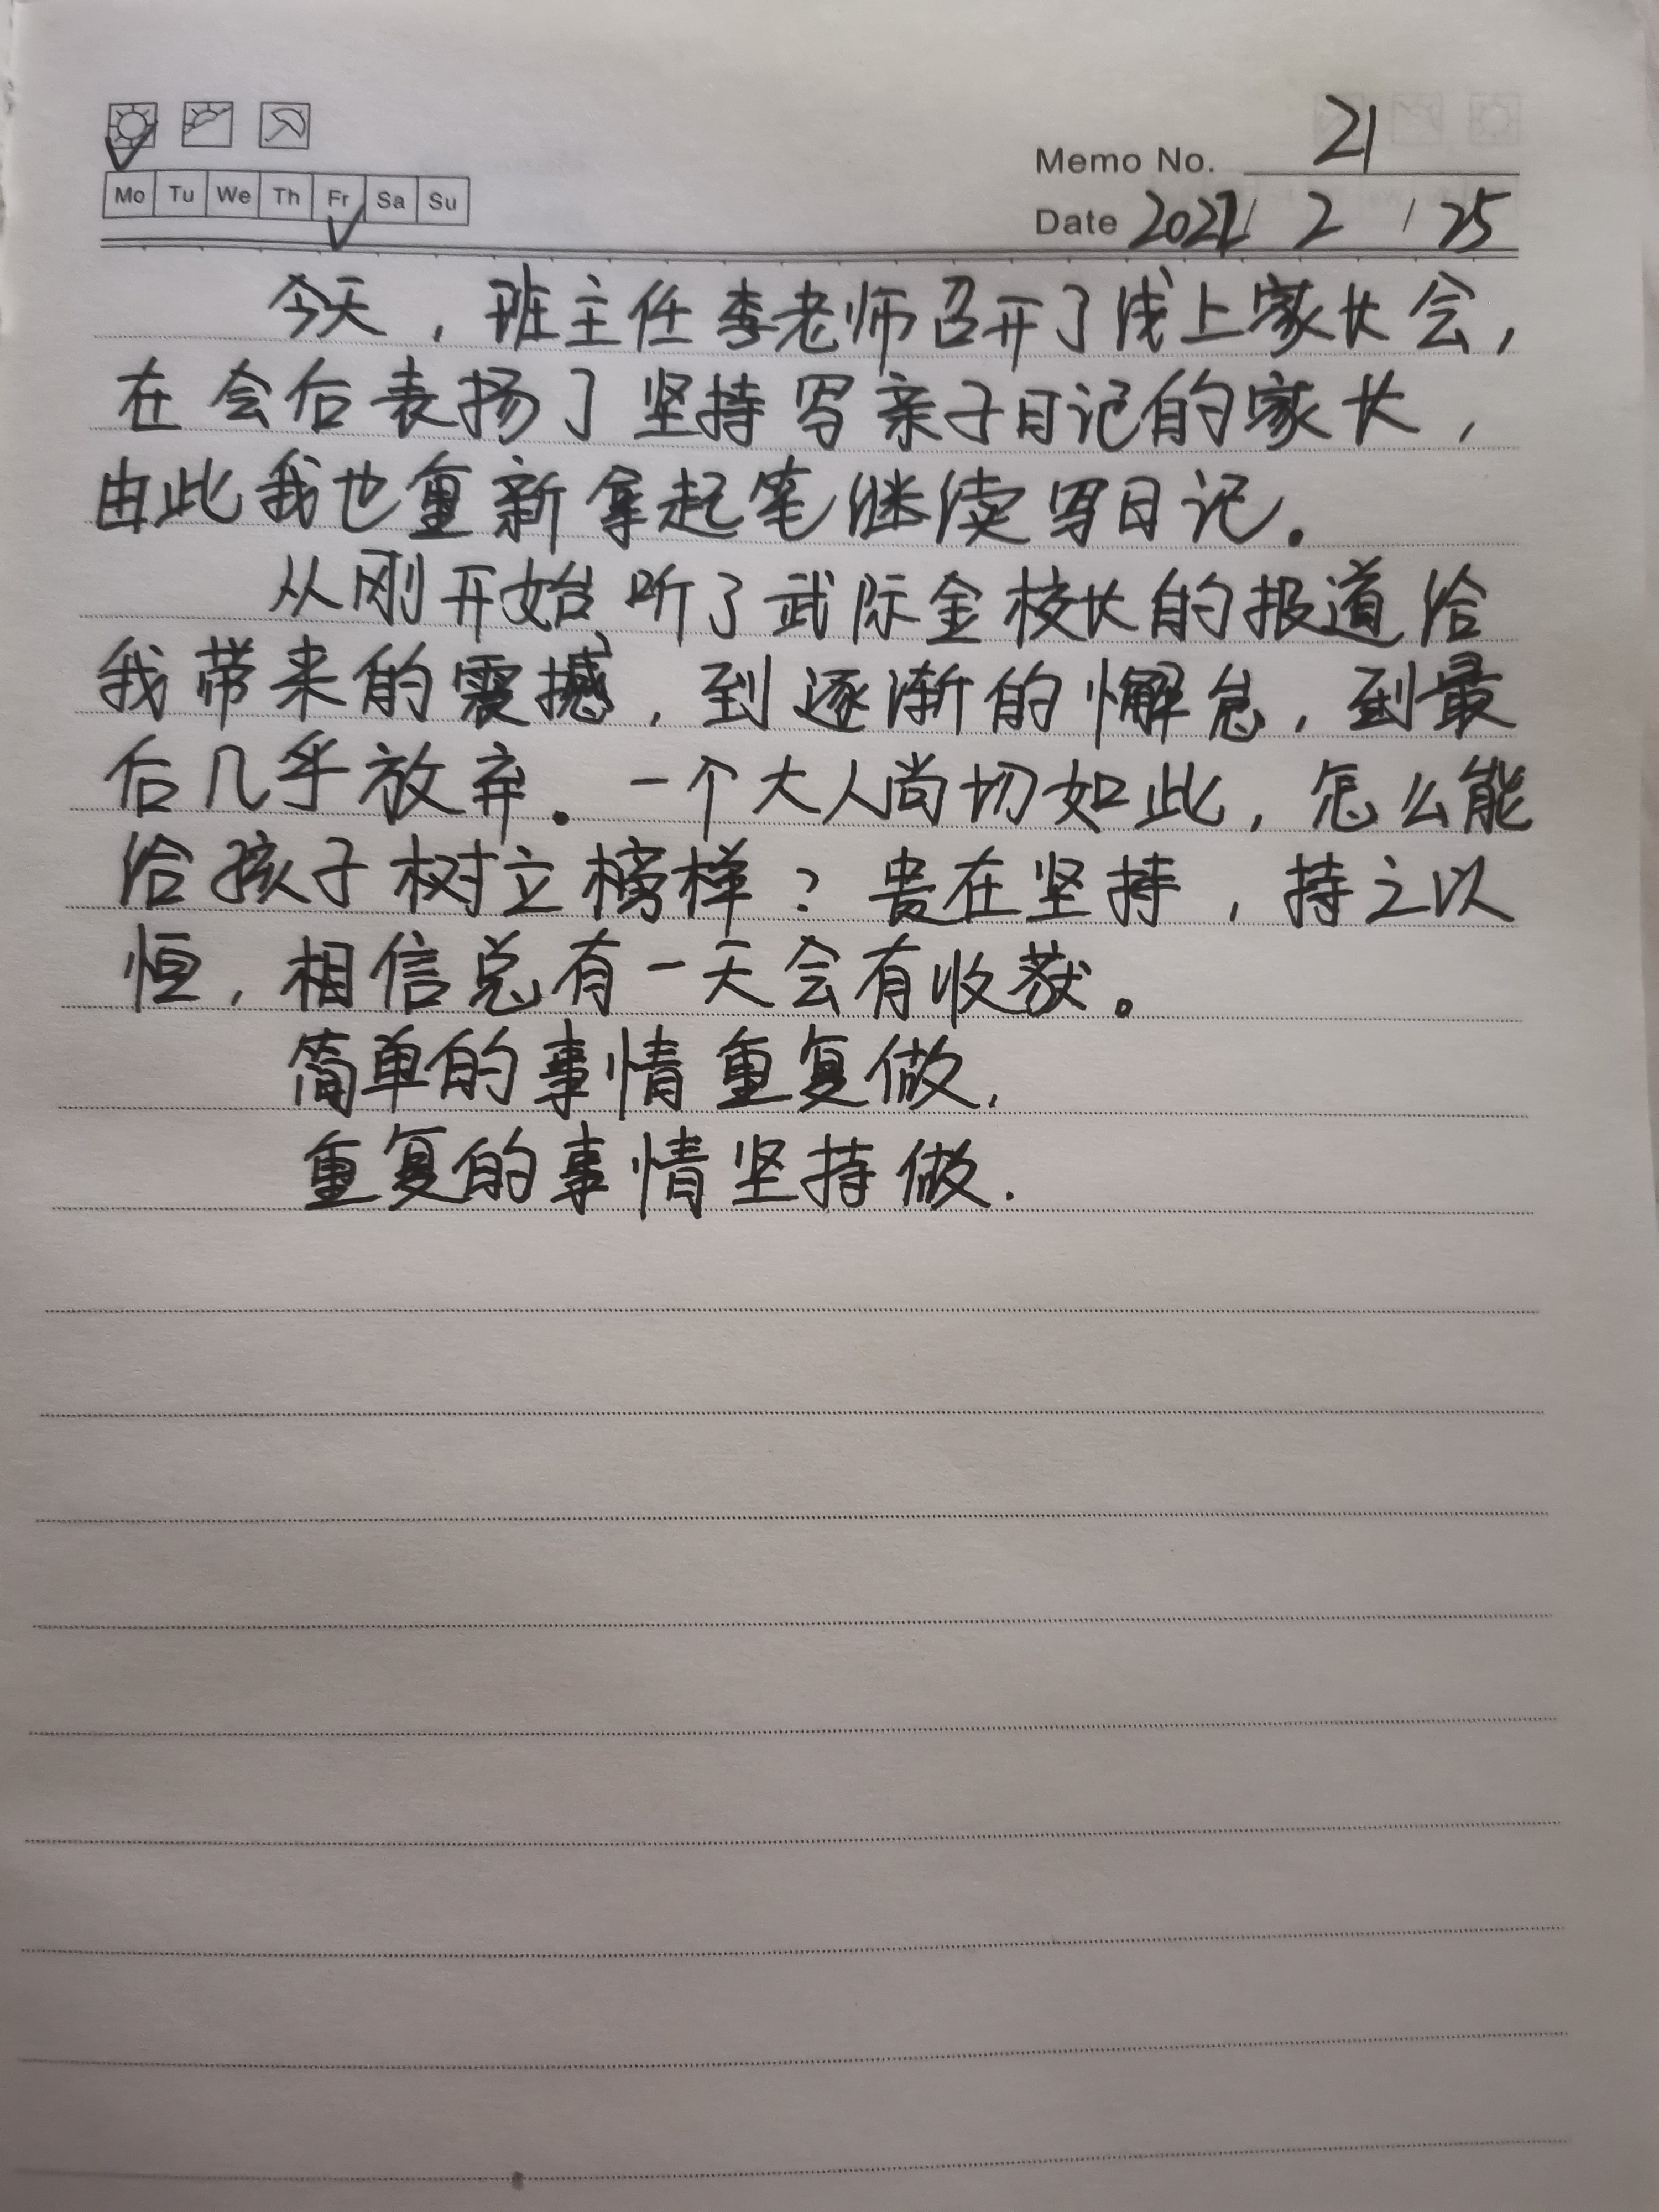 Memo No. 21
Mo Tu We Th Fr Sa Su
Date 2022 / 2 / 25
今天，班主任李老师召开了线上家长会，
在会后表扬了坚持写亲子日记的家长，
由此我也重新拿起笔继续写日记。
从刚开始听了武际金校长的报道给
我带来的震撼，到逐渐的懈怠，到最
后几乎放弃。一个大人尚切如此，怎么能
给孩子树立榜样？贵在坚持，持之以
恒，相信总有一天会有收获。
简单的事情重复做.
重复的事情坚持做.